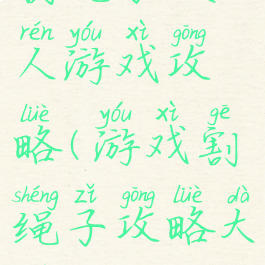 rén yóu xì gōng
人游戏攻
lüè yóu xì gē
略(游戏割
shéng zǐ gōng lüè dà
绳子攻略大